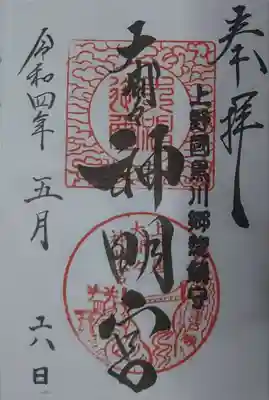 奉拝
上野國黒川郷総鎮守
大間々
神明宮
令和四年
五月
六日